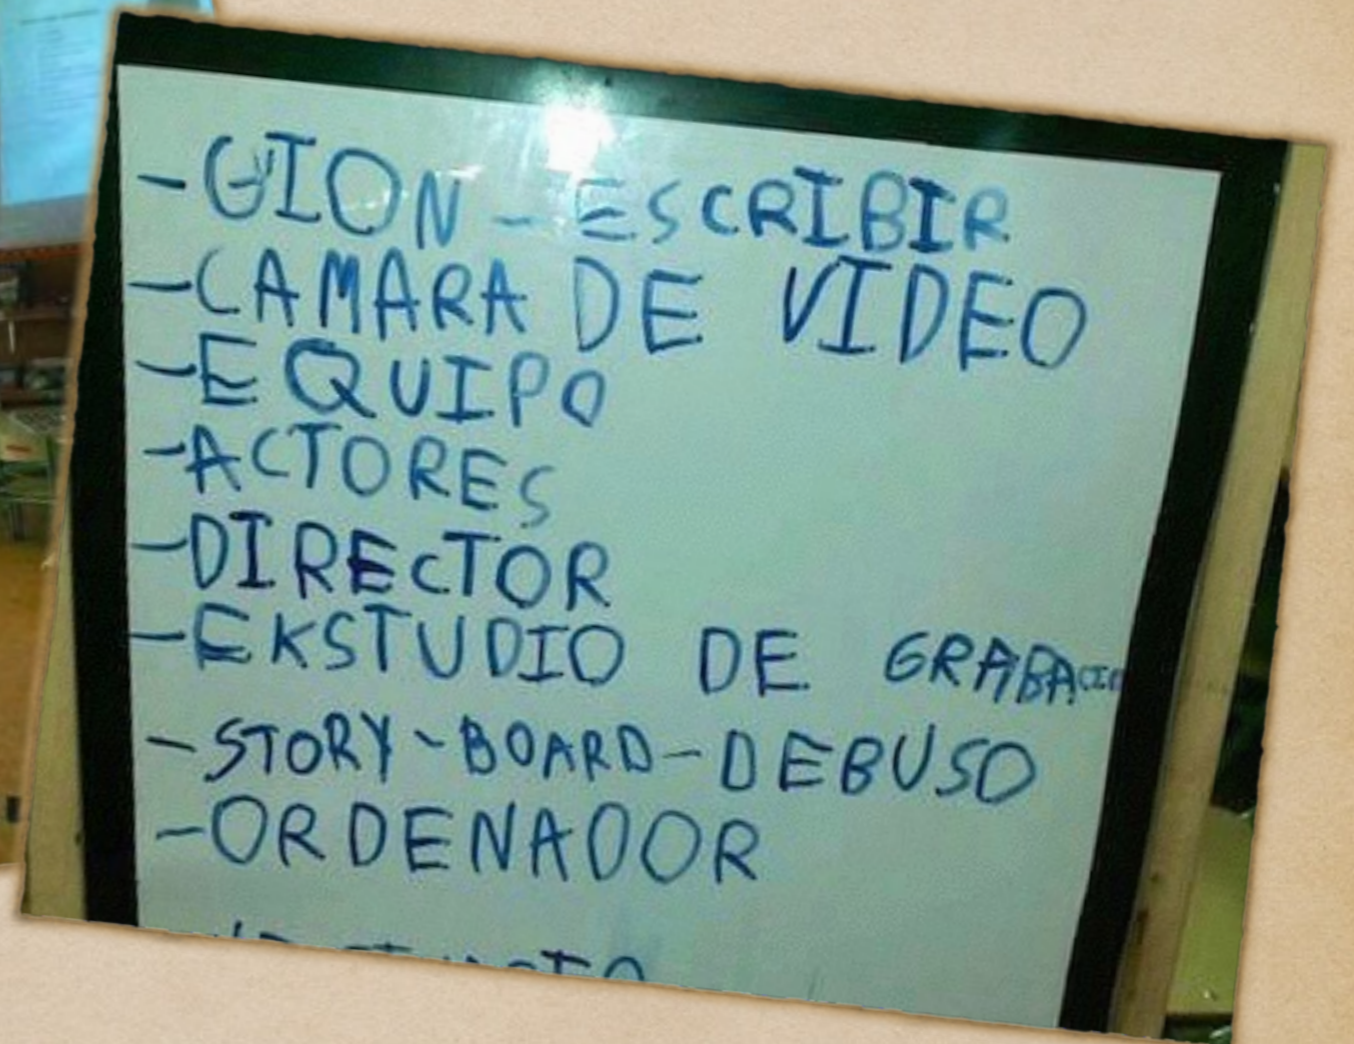 - GION - ESCRIBIR
- CAMARA DE VIDEO
- EQUIPO
- ACTORES
- DIRECTOR
- EKSTUDIO DE GRABACIO
- STORY-BOARD-DEBUSO
- ORDENADOR